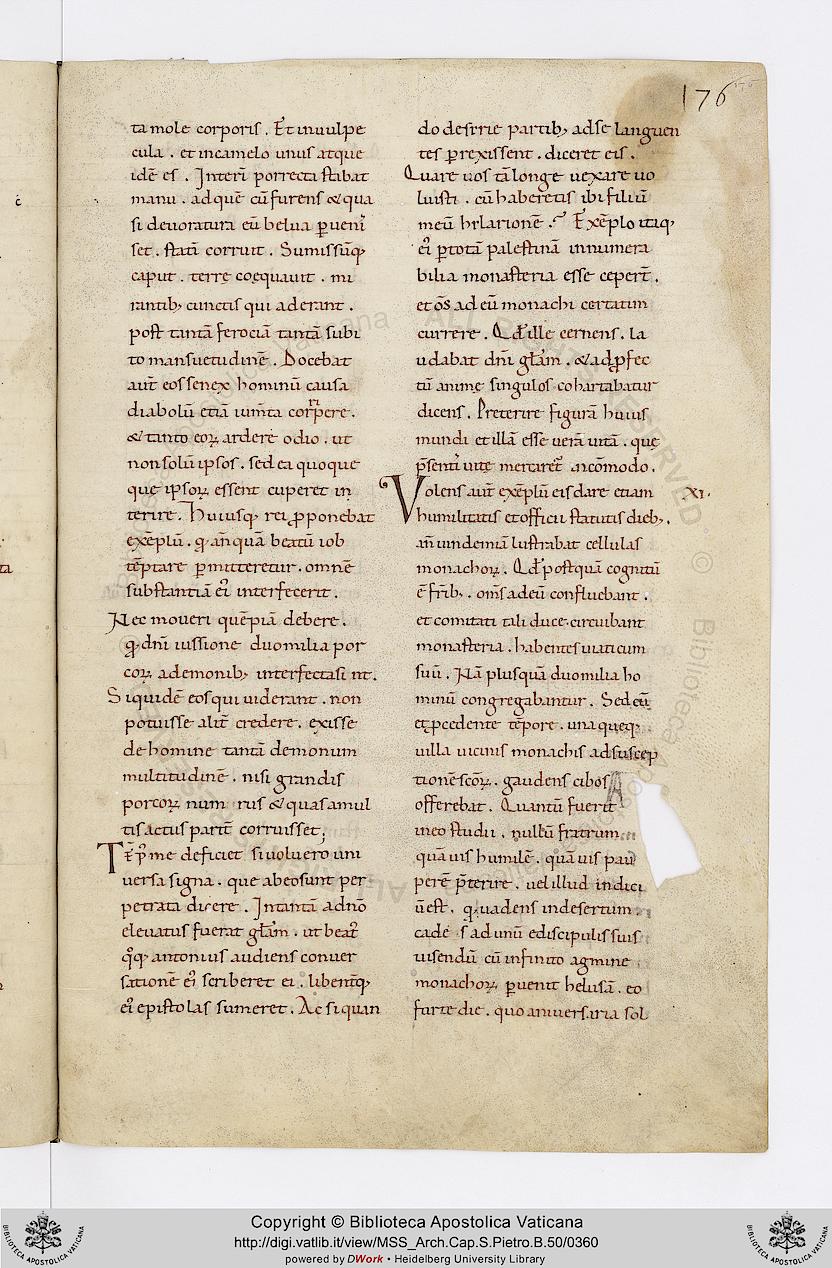 176
ta mole corporis . Et inuulpe
cula . et incamelo unus atque
idē es . Interī porrecta stabat
manu . adquē cū furens & qua
si deuoratura eū belua ꝑueni
set . statī corruit . Sumissūq;
caput . terre coequauit . mi
rantib; cunctis qui aderant .
post tantā ferociā tantā subi
to mansuetudinē . Docebat
aut̄ eos senex hominū causa
diabolū etiā ium̄ta corrꝑere .
& tanto eoꝝ ardere odio . ut
nonsolū ipsos . sed ea quoque
que ipsoꝝ essent cuperet in
terire . Huiusq; rei ꝓponebat
exēplū . qͥ anquā beatū iob
tēptare ꝑmitteretur . omnē
substantiā ei' interfecerit .
Nec moueri quēpiā debere .
qͥ dn̄i iussione duomilia por
coꝝ ademonib; interfecta si nt .
Siquidē eos qui uiderant . non
potuisse alit̄ credere . exisse
de homine tantā demonum
multitudinē . nisi grandis
porcoꝝ num rus & quasi amul
tis actus parit̄ corruisset ;
Tēp' me deficiet si uoluero uni
uersa signa . que abeo sunt per
petrata dicere . Intantā adn̄o
eleuatus fuerat gl̄am . ut beat'
qͦq; antonius audiens conuer
sationē ei' scriberet ei . libentq;
ei' epistolas sumeret . Ac siquan
do desirie partib; adse languen
tes ꝑrexissent . diceret eis .
Quare uos tā longe uexare uo
luisti . cū haberetis ibi filiū
meū hilarionē . Exēplo itaq;
ei' ꝑ totā palestinā innumera
bilia monasteria esse ceꝑert̄ .
et oms̄ ad eū monachi certatim
currere . Qd' ille cernens . la
udabat dn̄i gl̄am . & ad ꝓfec
tū anime singulos cohartabatur
dicens . Preterire figurā huius
mundi et illā esse uerā uitā . que
p̄senti' uite mercaret' incōmodo .
Volens aut̄ exēplū eis dare etiam
XI .
humilitatis et officii statutis dieb; .
an̄ uindemiā lustrabat cellulas
monachoꝝ . Qd' postquā cognitū
ē frīb; . om̄s ad eū confluebant .
et comitati tali duce . circuibant
monasteria . habentes uiaticum
suū . Nā plusquā duomilia ho
minū congregabantur . Sed cū
& ꝓcedente tēpore . una queq;
uilla uicinis monachis ad suscep
tionē sc̄oꝝ . gaudens cibos
offerebat . Quantū fuerit
ineo studii . nullū fratrum
quāuis humilē . quāuis pau
perē p̄terire . uel illud indici
ū est . qͥ uadens indesertum
cade s ad unū ediscipulis suis
uisendū cū infinito agmine
monachoꝝ . ꝑuenit helusā . eo
forte die . quo aniuersaria sol
Copyright © Biblioteca Apostolica Vaticana
http://digi.vatlib.it/view/MSS_Arch.Cap.S.Pietro.B.50/0360
powered by DWork • Heidelberg University Library
BIBLIOTECA APOSTOLICA VATICANA
BIBLIOTECA APOSTOLICA VATICANA